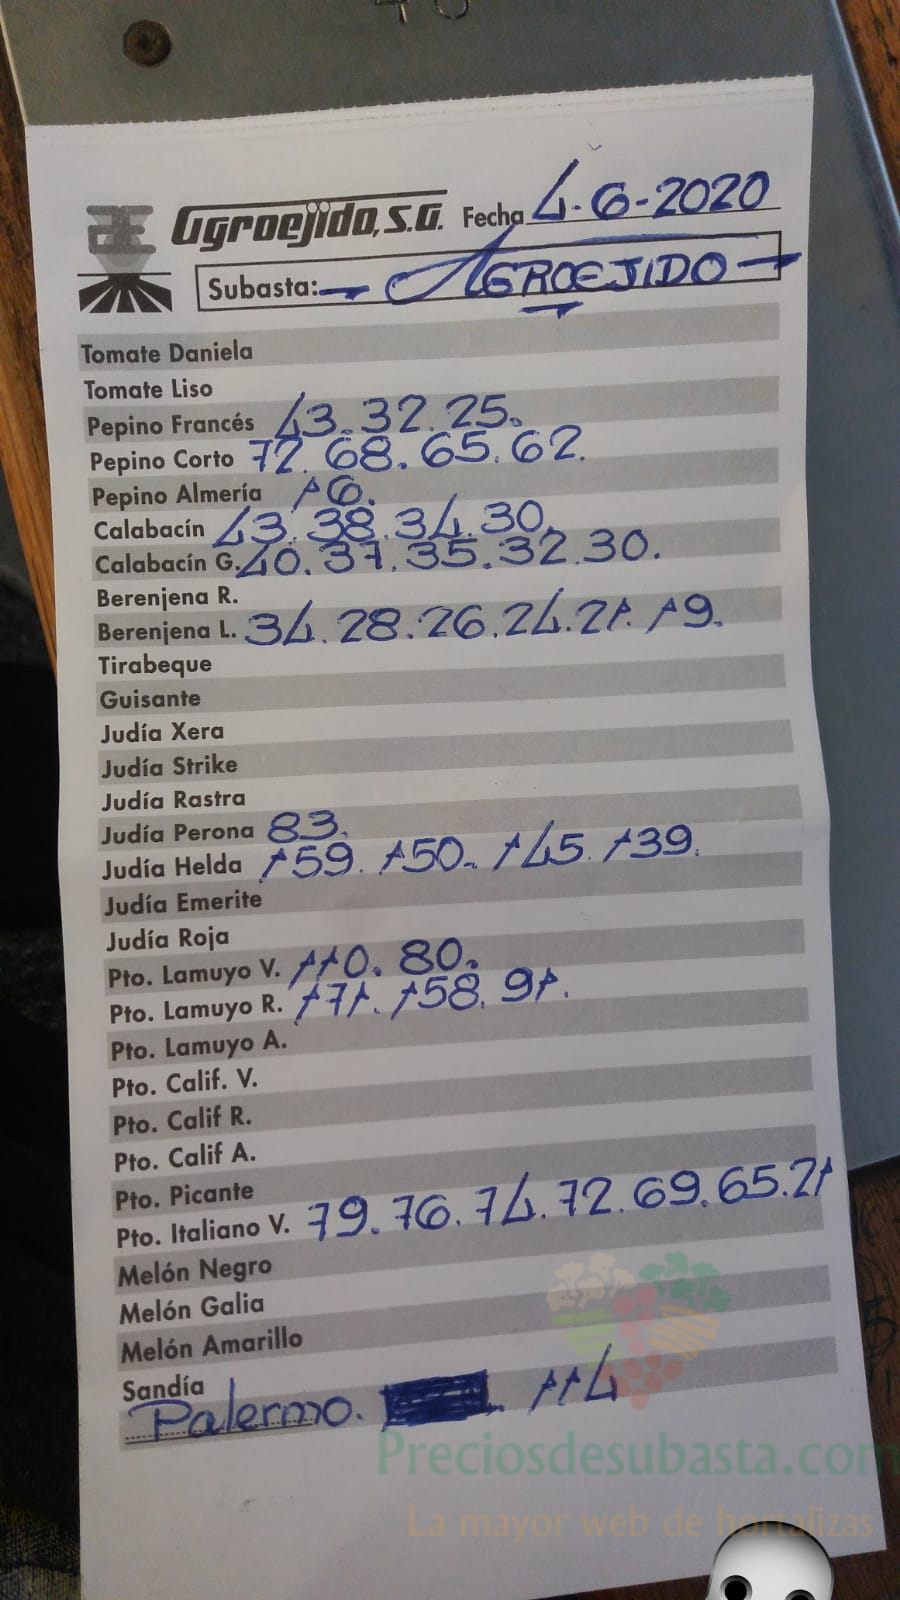 Agroejido, S.A. Fecha 4-6-2020
Subasta: - AGROEJIDO -
Tomate Daniela
Tomate Liso
Pepino Francés 43. 32. 25.
Pepino Corto 72. 68. 65. 62.
Pepino Almería 16.
Calabacín 43. 38. 34. 30.
Calabacín G. 40. 37. 35. 32. 30.
Berenjena R.
Berenjena L. 34. 28. 26. 24. 21. 19.
Tirabeque
Guisante
Judía Xera
Judía Strike
Judía Rastra
Judía Perona 83.
Judía Helda 159. 150. 145. 139.
Judía Emerite
Judía Roja
Pto. Lamuyo V. 110. 80.
Pto. Lamuyo R. 171. 158. 91.
Pto. Lamuyo A.
Pto. Calif. V.
Pto. Calif R.
Pto. Calif A.
Pto. Picante
Pto. Italiano V. 79. 76. 74. 72. 69. 65. 21
Melón Negro
Melón Galia
Melón Amarillo
Sandía
Palermo. 114
Preciosdesubasta.com
La mayor web de hortalizas